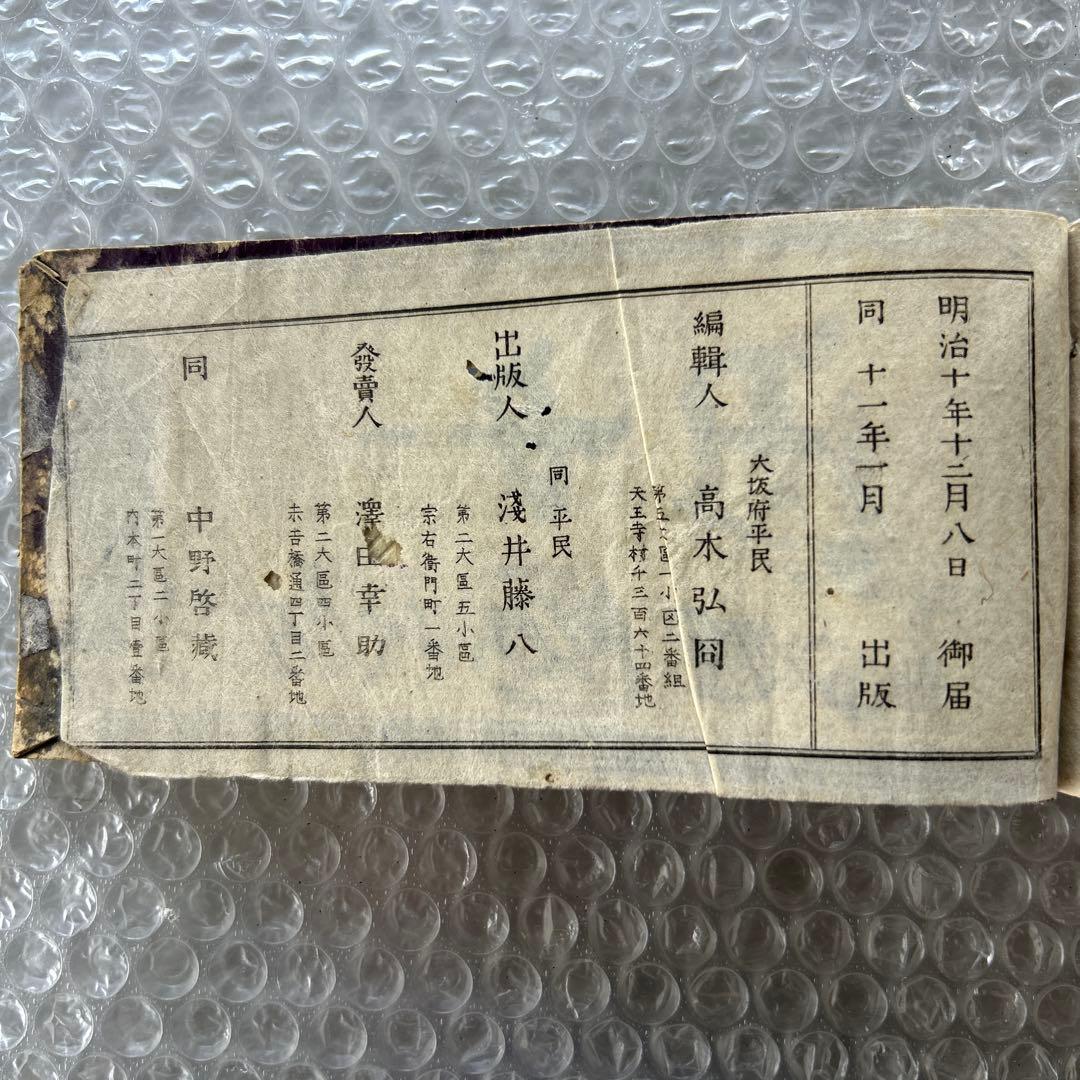 明治十年十二月八日 御届
同 十一年一月 出版
大坂府平民
編輯人 高木弘冏
第五大區一小区二番組
天王寺村千三百六十四番地
同 平民
出版人 淺井藤八
第二大區五小區
宗右衛門町一番地
發賣人 澤田幸助
第二大區四小區
末吉橋通四丁目二番地
同 中野啓藏
第一大區二小區
内本町二丁目壹番地